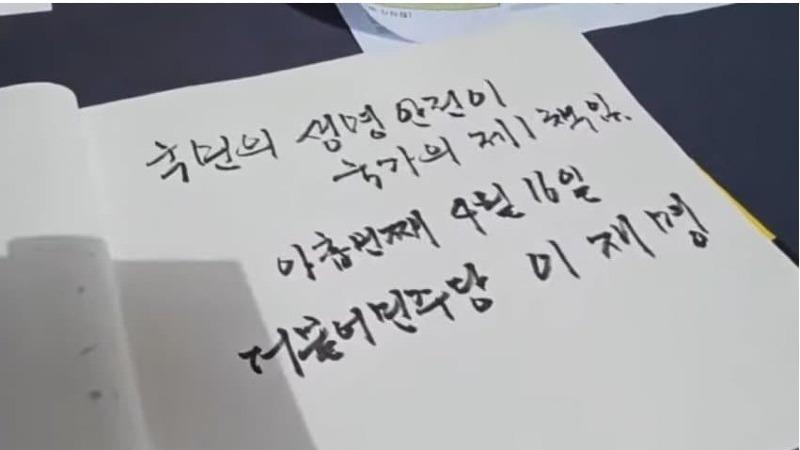 국민의 생명 안전이
국가의 제1책임.
아홉번째 4월 16일
더불어민주당 이재명